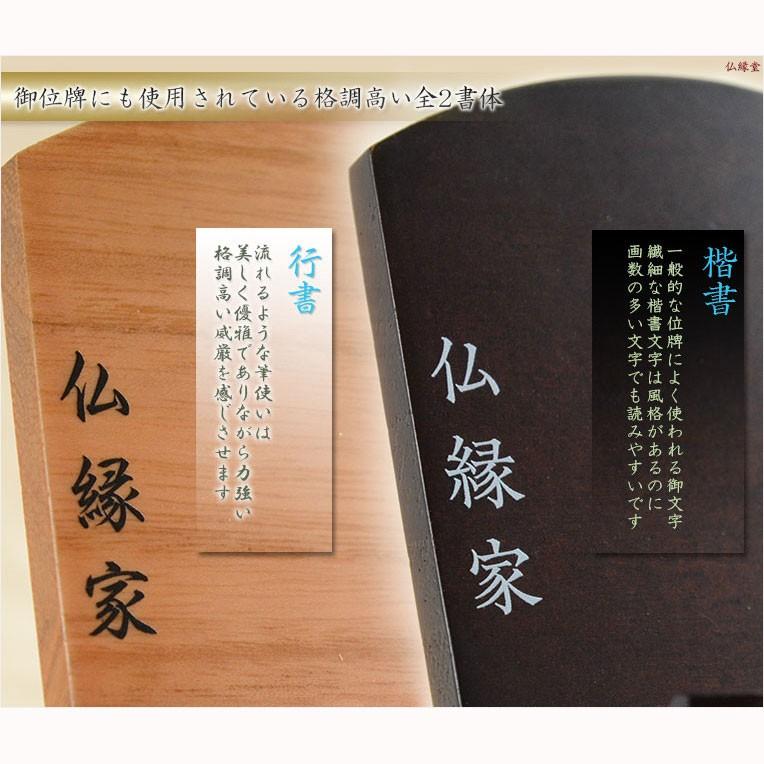 仏縁堂
御位牌にも使用されている格調高い全2書体
行書
流れるような筆使いは
美しく優雅でありながら力強い
格調高い威厳を感じさせます
仏縁家
楷書
一般的な位牌によく使われる御文字
繊細な楷書文字は風格があるのに
画数の多い文字でも読みやすいです
仏縁家